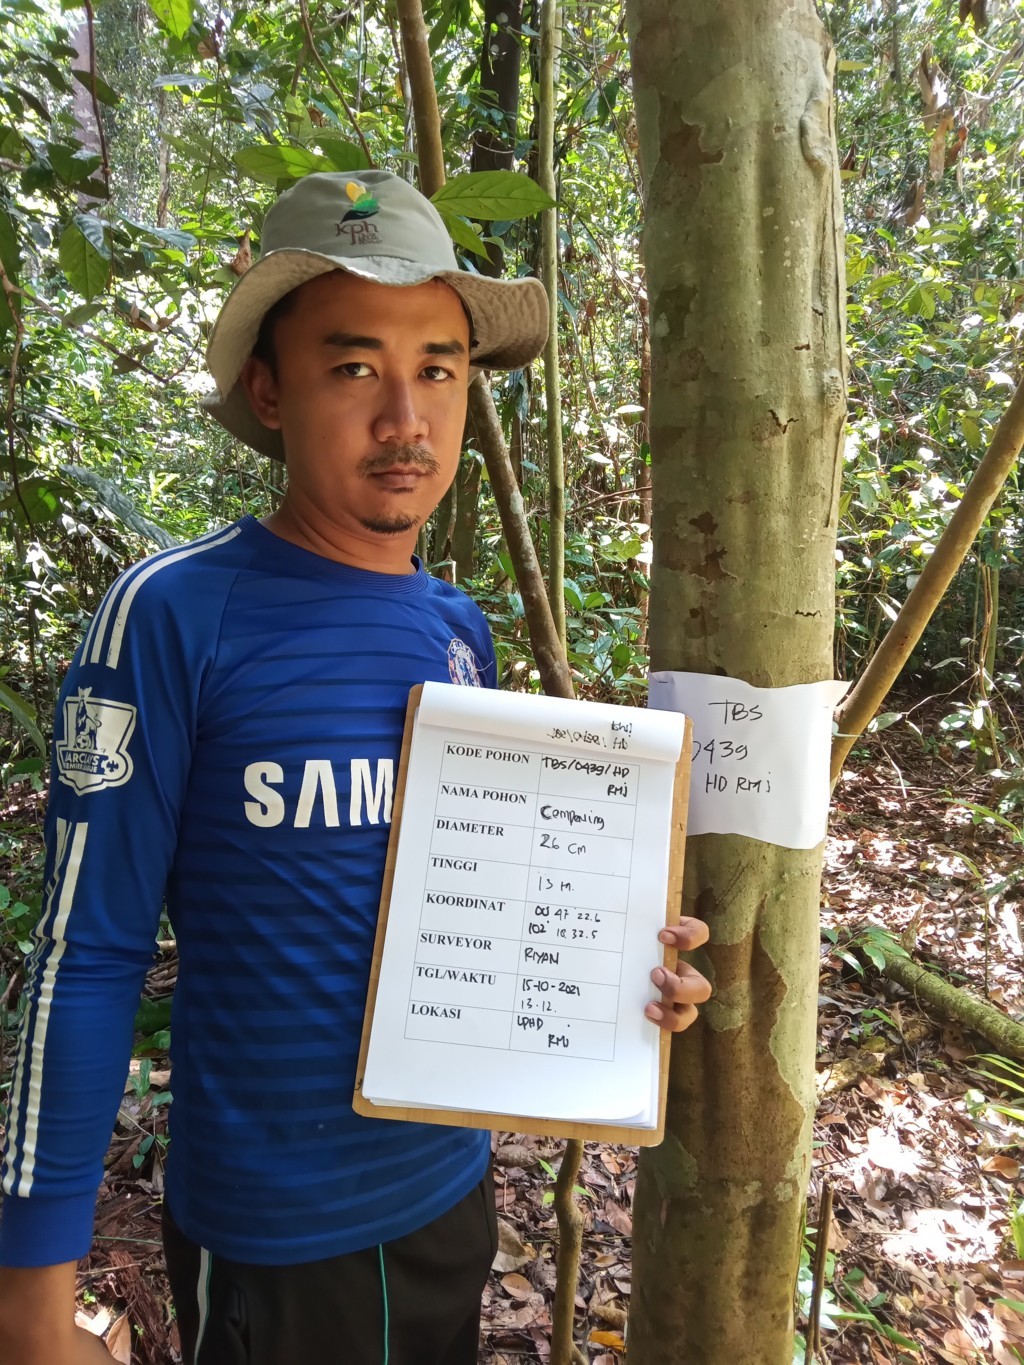 kph
SAM
BARCLAYS
KODE POHON TBS/0439/HD
RMj
NAMA POHON Compening
DIAMETER 26 cm
TINGGI 13 M.
KOORDINAT 00 47 22.6
102 18 32.5
SURVEYOR RIYAN
TGL/WAKTU 15-10-2021
13.12.
LOKASI LPHD
RMj
TBS
0439
HD RMj